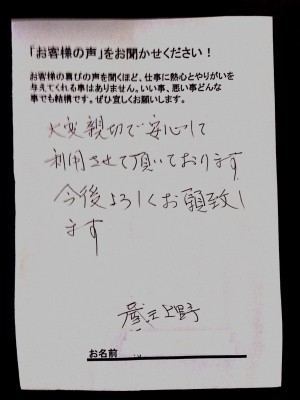 「お客様の声」をお聞かせください！
お客様の喜びの声を聞くほど、仕事に熱心とやりがいを
与えてくれる事はありません。いい事、悪い事どんな
事でも結構です。ぜひ宜しくお願いします。
大変親切で安心して
利用させて頂いております
今後よろしくお願致し
ます
上野
お名前